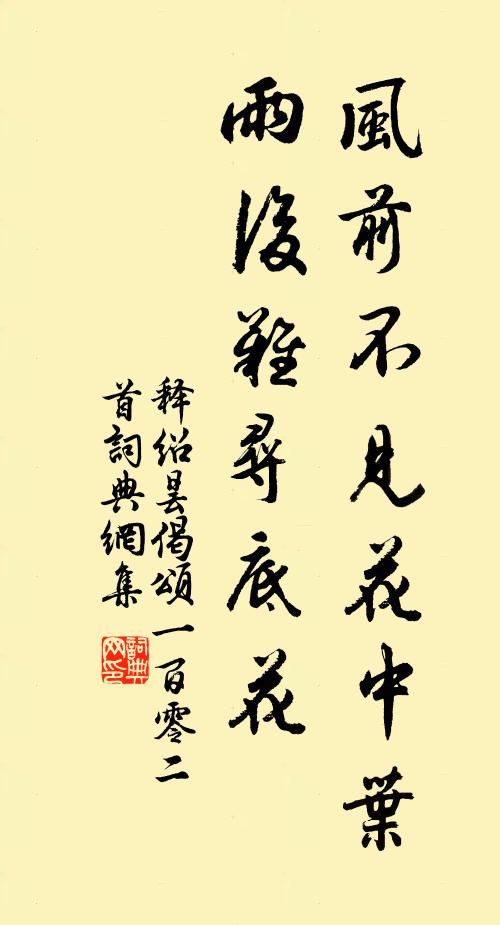 風前不見花中葉
雨後難尋底花
释绍昙偈頌一百零二
首詞典網集
詞典
网印